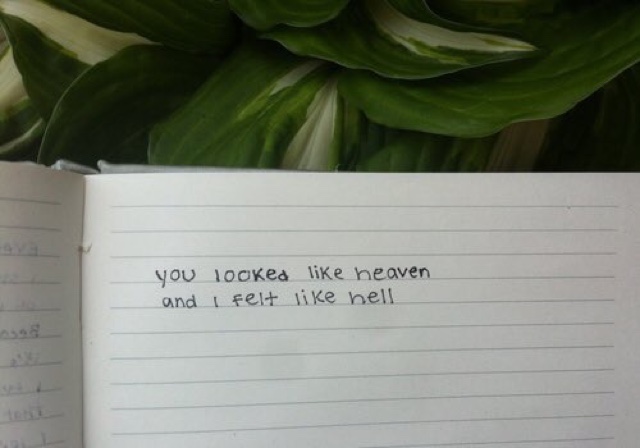 you looked like heaven
and i felt like hell